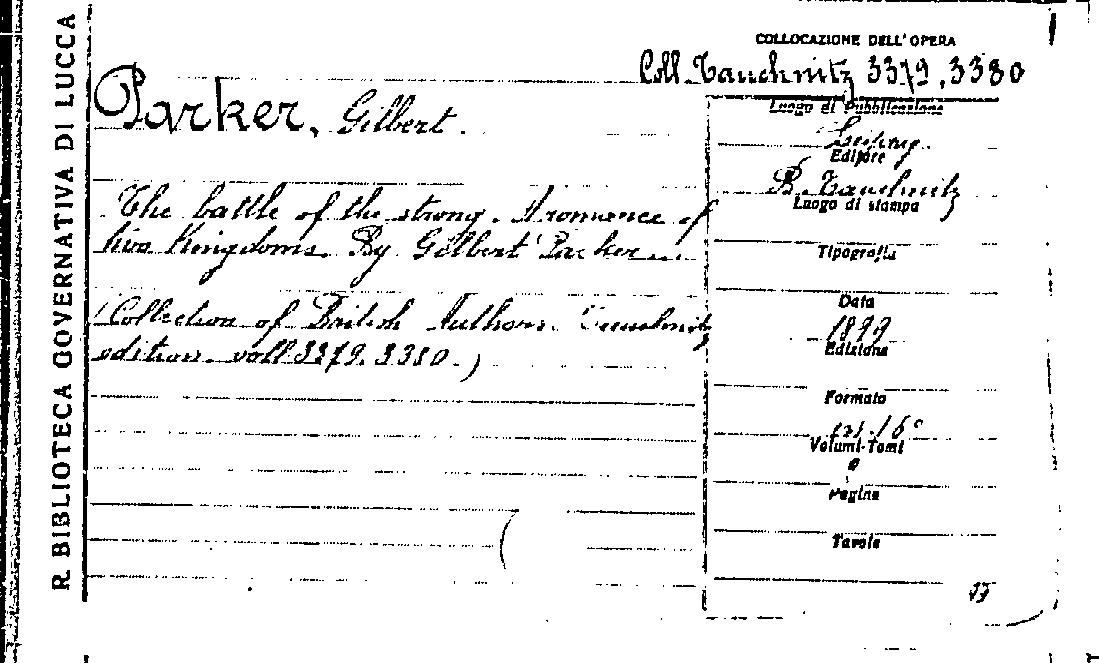 R. BIBLIOTECA GOVERNATIVA DI LUCCA
COLLOCAZIONE DELL'OPERA
Coll. Tauchnitz 3379, 3380
Parker, Gilbert.
The battle of the strong. A romance of
two Kingdoms. By Gilbert Parker...
(Collection of British Authors. Tauchnitz
edition. voll 3379. 3380.)
Luogo di Pubblicazione
Leipzig.
Editore
B. Tauchnitz
Luogo di stampa
Tipografia
Data
1899
Edizione
Formato
in. 16°
Volumi-Tomi
Pagine
Tavole